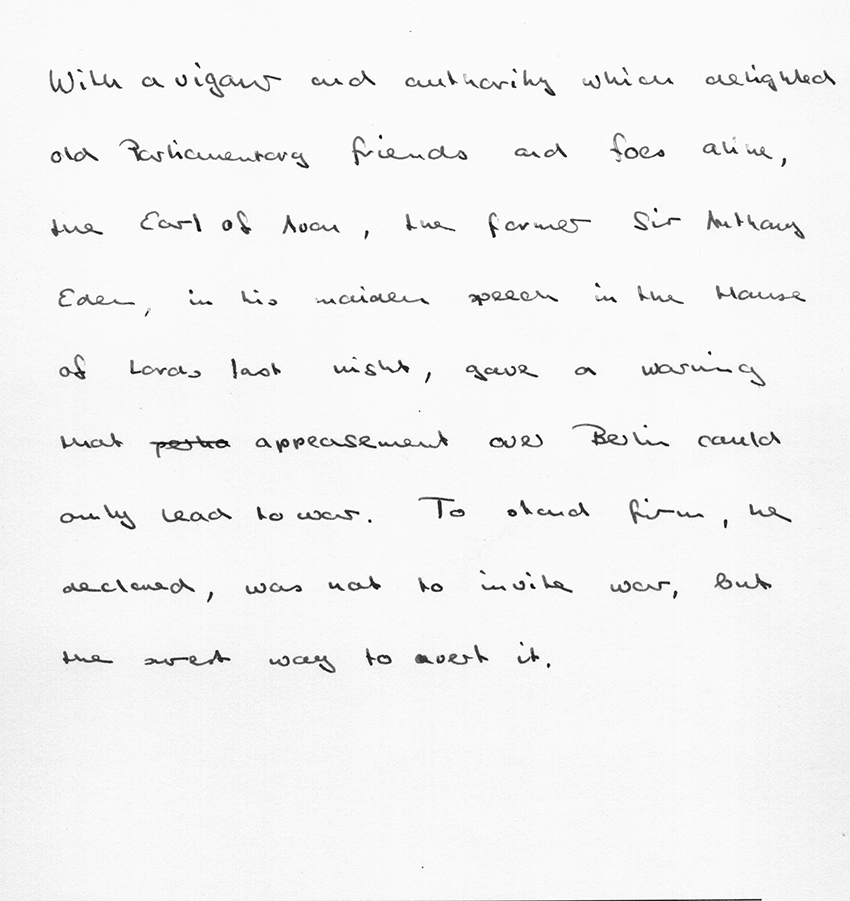 With a vigour and authority which delighted
old Parliamentary friends and foes alike,
the Earl of Avon, the former Sir Anthony
Eden, in his maiden speech in the House
of Lords last night, gave a warning
that appeasement over Berlin could
only lead to war. To stand firm, he
declared, was not to invite war, but
the surest way to avert it.